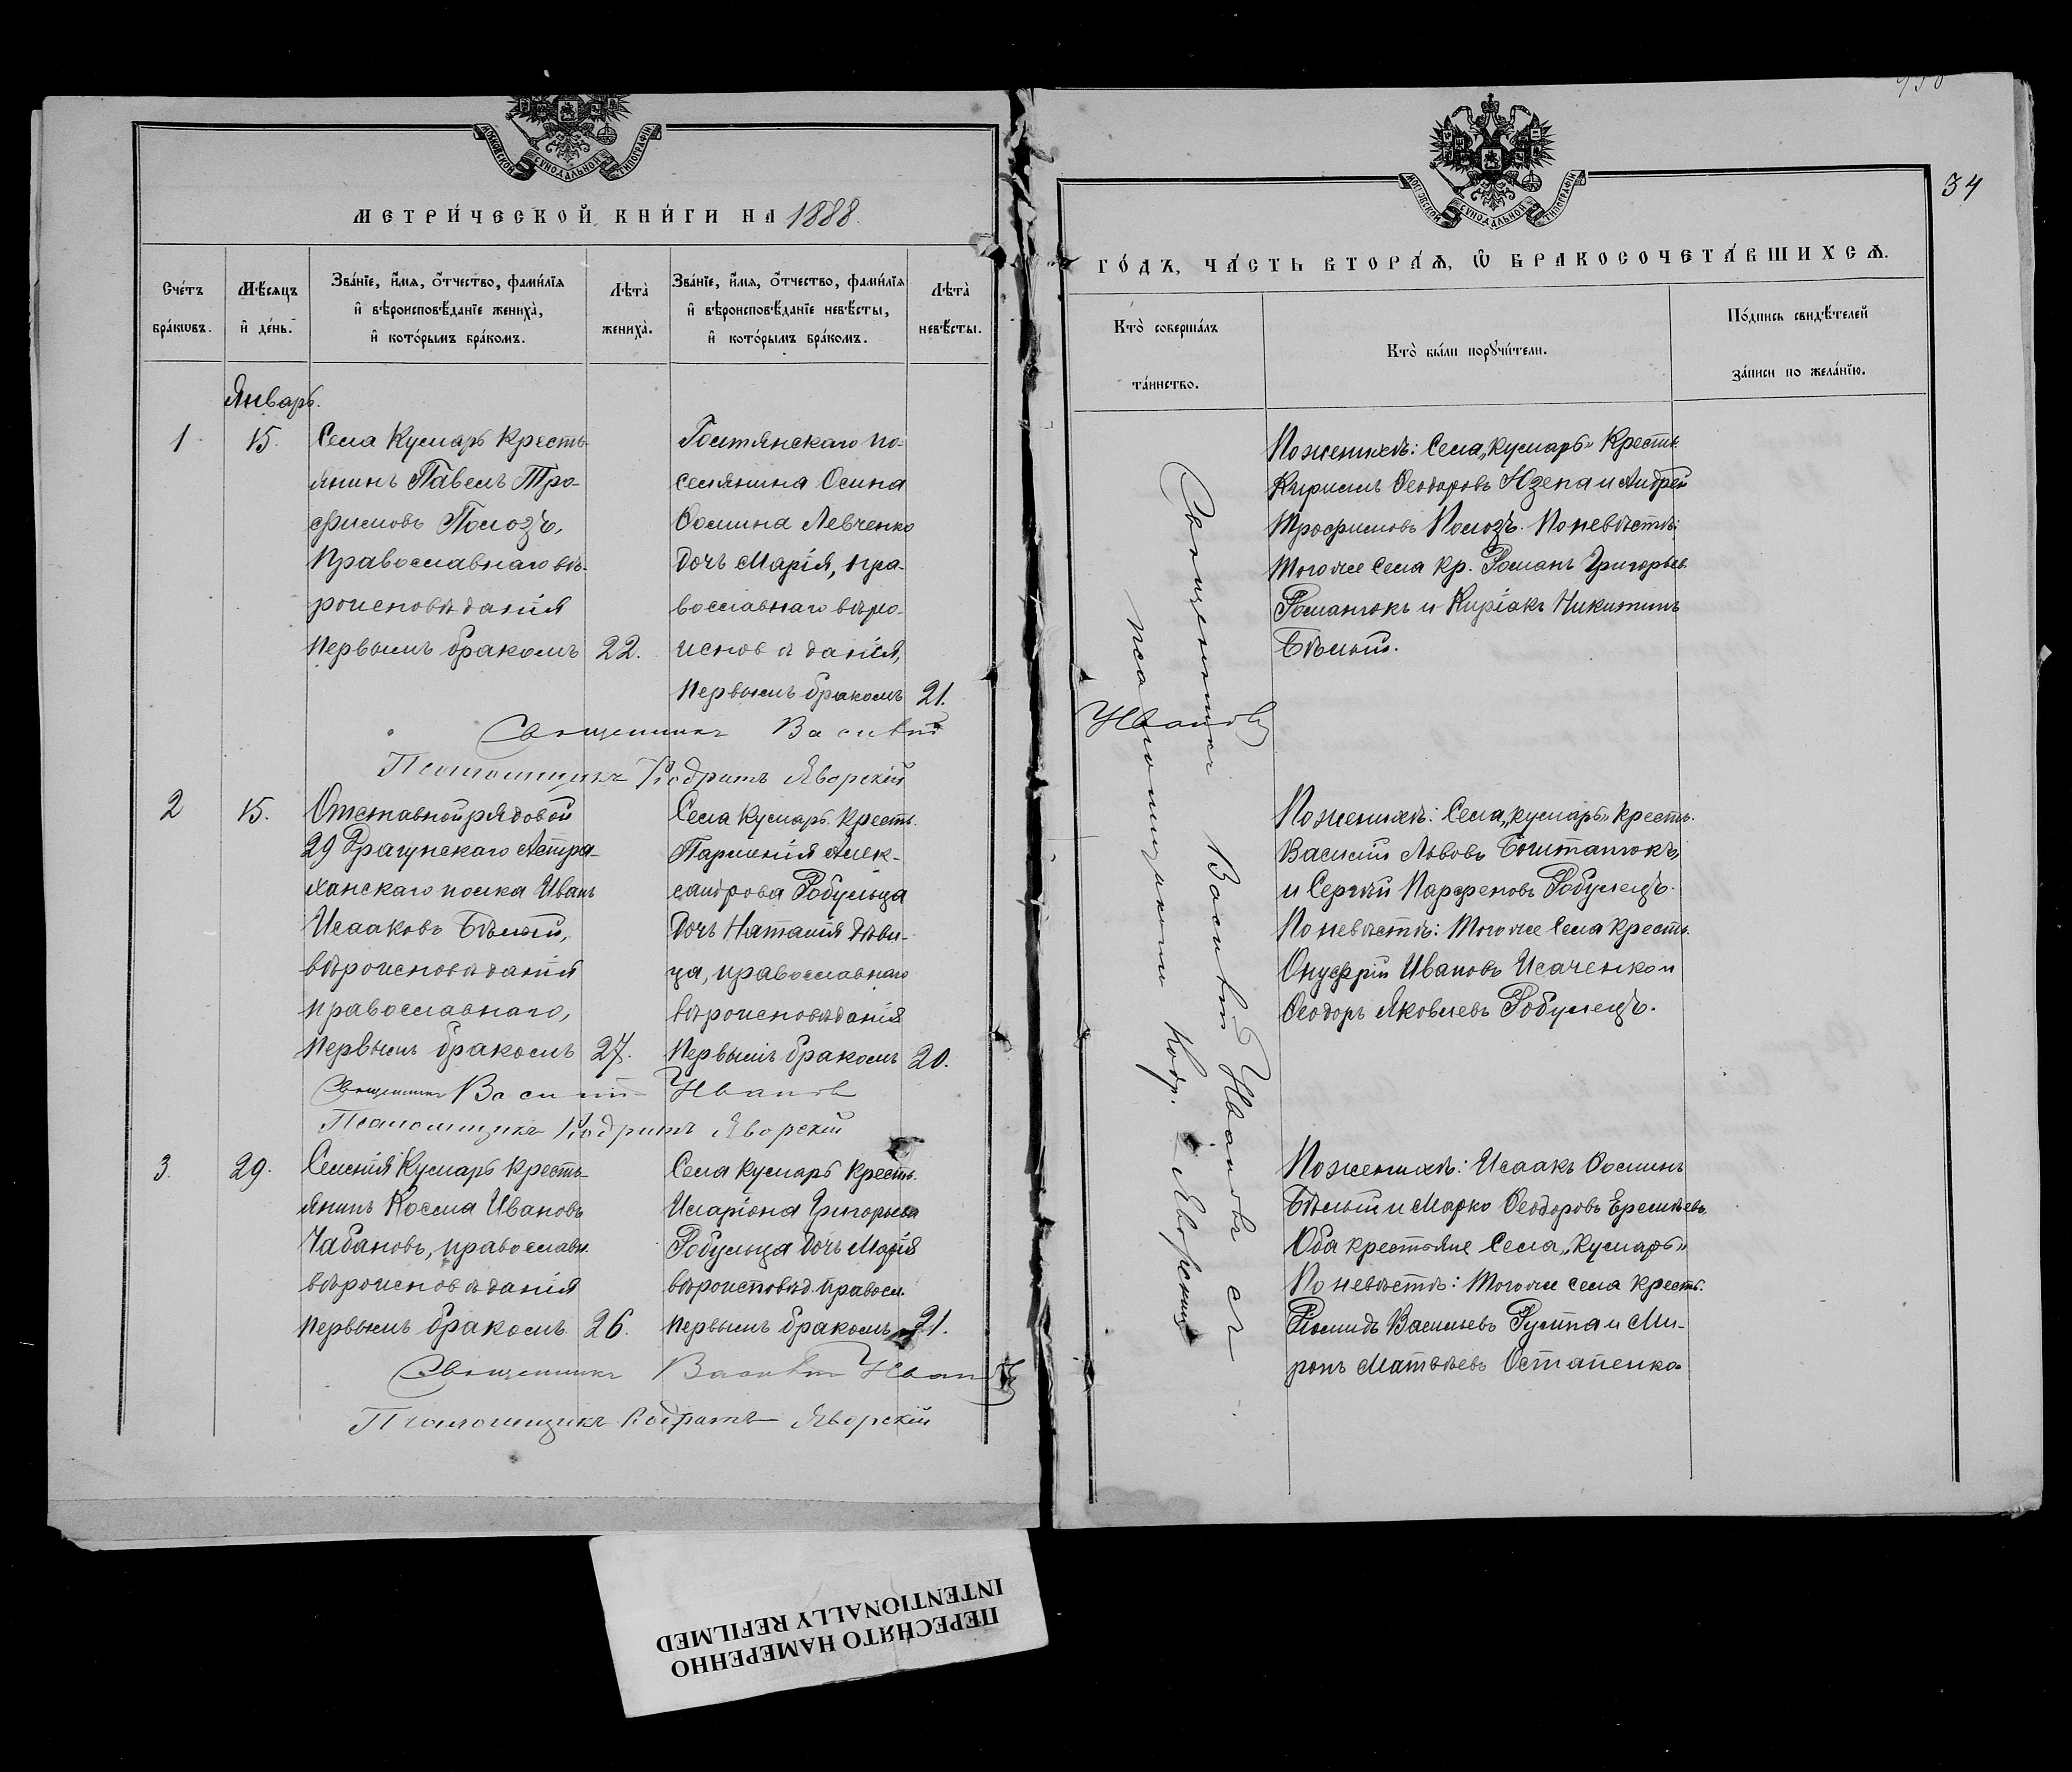 МОСКОВСКОЙ СУНОДАЛЬНОЙ ТИПОГРАФІИ
МЕТРИ́ЧЕСКОЙ КНИ́ГИ НА 1888.
Сче́тъ бра́кѡвъ.
Мѣ́сѧцъ и҆ де́нь.
Зва́нїе, и҆́мѧ, ѻ҆́тчество, фами́лїѧ
и҆ вѣроисповѣ́данїе жениха̀,
и҆ кото́рымъ бра́комъ.
Лѣта̀ жениха̀.
Зва́нїе, и҆́мѧ, ѻ҆́тчество, фами́лїѧ
и҆ вѣроисповѣ́данїе невѣ́сты,
и҆ кото́рымъ бра́комъ.
Лѣта̀ невѣ́сты.
Январь.
1
15.
Села Кусмарь Кресть-
янинъ Павелъ Тро-
фимовъ Помозъ,
Православнаго вѣ-
роисповѣданія
Первымъ бракомъ
22.
по-
селянина Осипа
Ѳомина Левченко
Дочь Марія, пра-
вославнаго вѣро-
исповѣданія,
Первымъ бракомъ
21.
Священникъ Василій
Псаломщикъ Кодратъ Яворскій
2
15.
Отставной рядовой
29 Драгунскаго Астра-
ханскаго полка Иванъ
Исааковъ Бѣлый,
вѣроисповѣданія
православнаго,
Первымъ бракомъ
27.
Села Кусмарь Кресть.
Парменія Алек-
сандрова Робульца
Дочь Наталія дѣви-
ца, православнаго
вѣроисповѣданія
Первымъ бракомъ
20.
Священникъ Василій Ивановъ
Псаломщикъ Кодратъ Яворскій
3.
29.
Селенія Кусмарь Кресть-
янинъ Косма Ивановъ
Чабановъ, православн.
вѣроисповѣданія
Первымъ бракомъ
26.
Села Кусмарь Кресть.
Иларіона Григорьева
Робульца Дочь Марія
вѣроисповѣд. правосл.
Первымъ бракомъ
21.
Священникъ Василій Ивановъ
Псаломщикъ Кодратъ Яворскій
34
МОСКОВСКОЙ СУНОДАЛЬНОЙ ТИПОГРАФІИ
ГО́ДЪ, ЧА́СТЬ ВТОРА́Ѧ, Ѡ҆ БРАКОСОЧЕТА́ВШИХСѦ.
Кто̀ соверша́лъ
та́инство.
Кто̀ бы́ли порꙋчи́тели.
По́дпись свидѣ́телей
за́писи по жела́нїю.
Священникъ Василій Ивановъ съ
псаломщикомъ Кодр. Яворскимъ
Ивановъ
По женихѣ: Села „Кусмарь" Кресть.
Кирилъ Ѳеодоровъ Изепа и Андрей
Трофимовъ Помозъ. По невѣстѣ:
Того же Села кр. Романъ Григорьев.
Романюкъ и Киріакъ Никитинъ
Бѣлый.
По женихѣ: Села „Кусмарь" Кресть.
Василій Львовъ Боштанюкъ,
и Сергѣй Парфеновъ Робулецъ.
По невѣстѣ: Того же Села Кресть.
Онуфрій Ивановъ Исаченко и
Ѳеодоръ Яковлевъ Робулецъ.
По женихѣ: Исаакъ Ѳоминъ
Бѣлый и Марко Ѳеодоровъ Еремѣевъ
Оба крестьяне Села „Кусмарь"
По невѣстѣ: Того же села Кресть.
Діомидъ Васильевъ и Ми-
ронъ Матвѣевъ Остапенко
ПЕРЕСНЯТО НАМЕРЕННО
INTENTIONALLY REFILMED